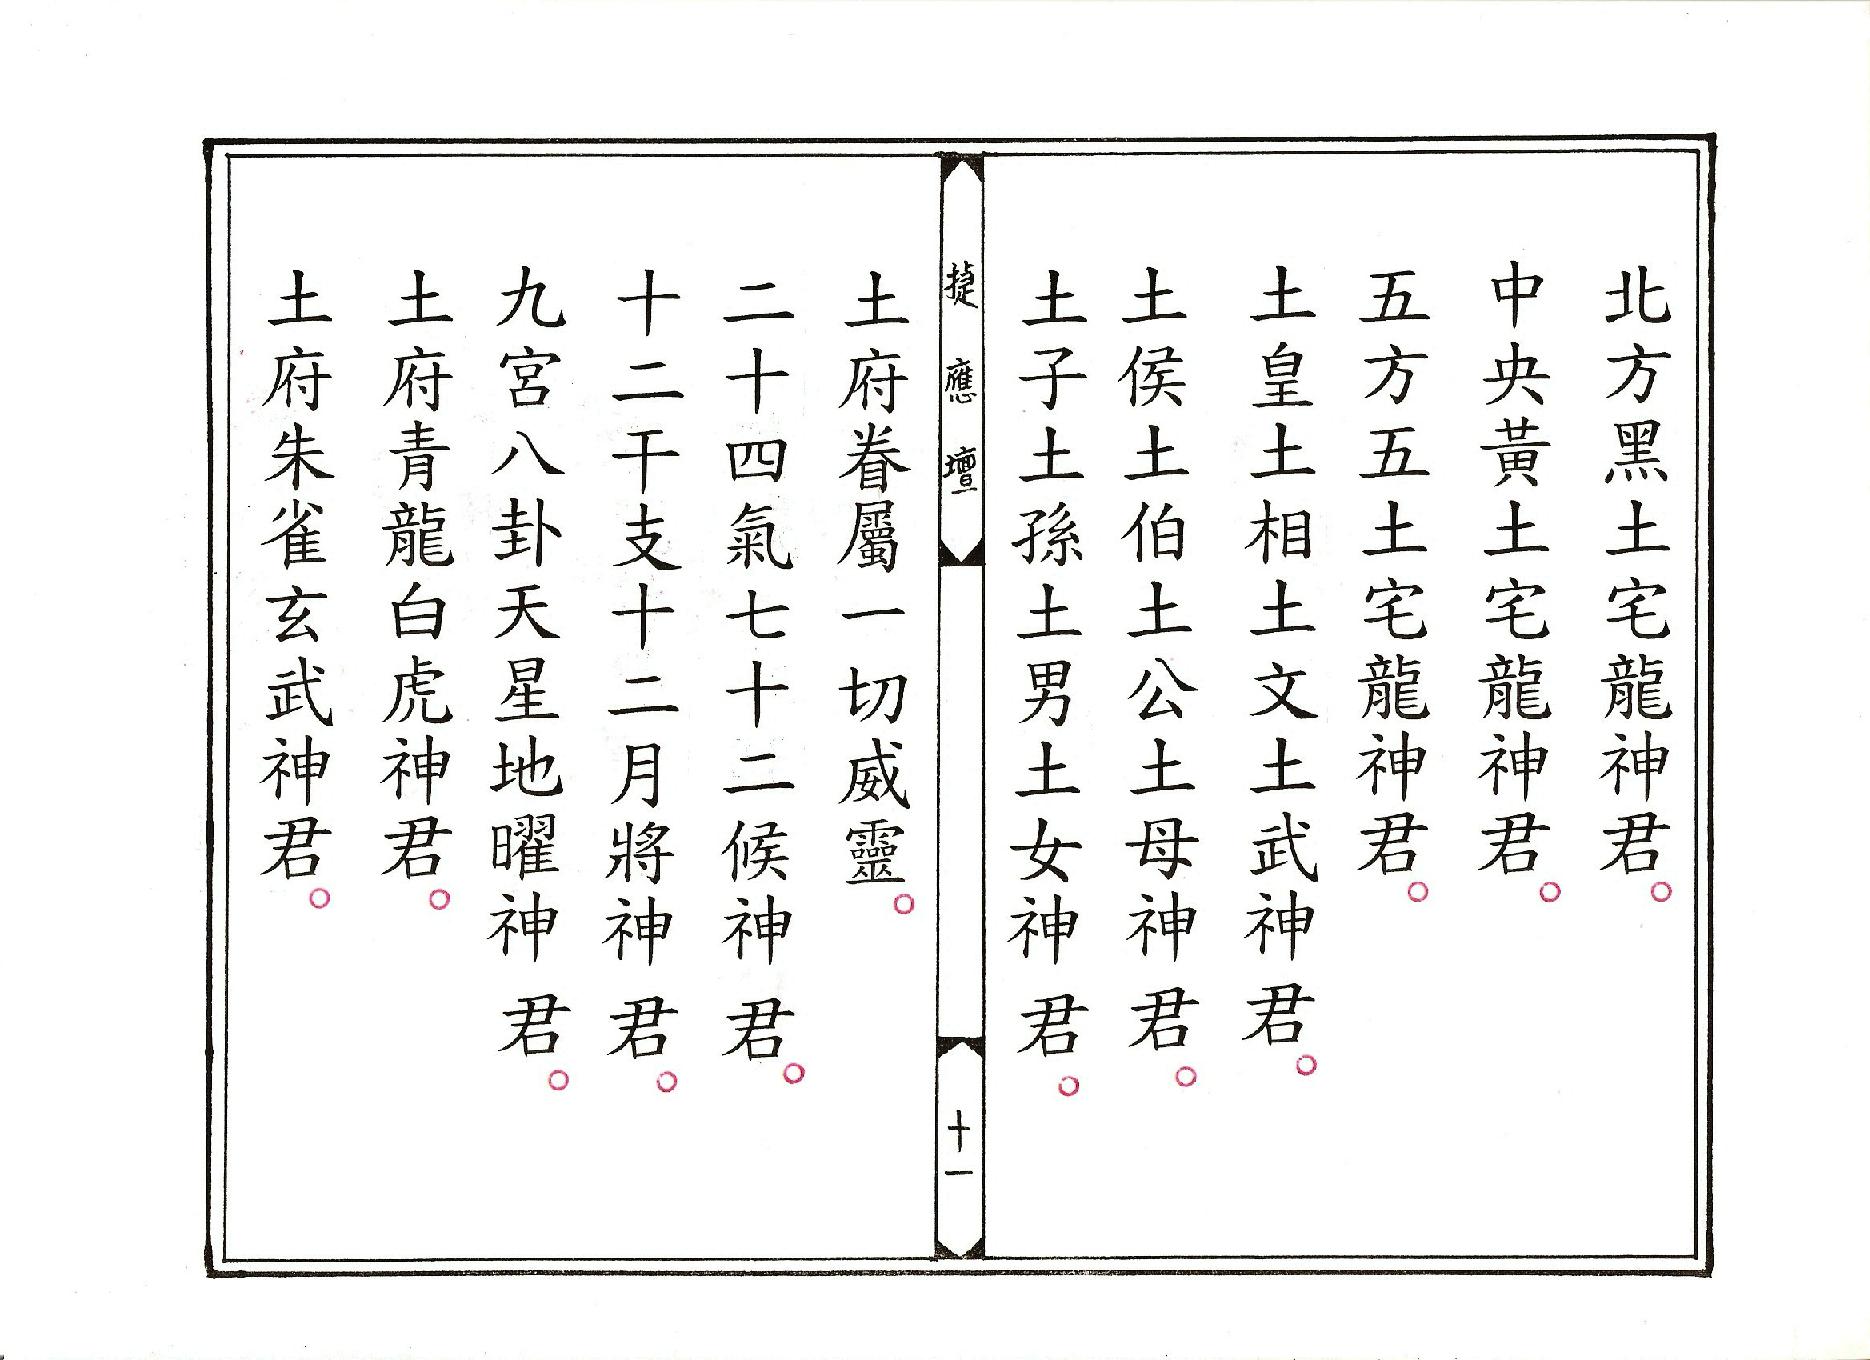 北方黑土宅龍神君。
中央黃土宅龍神君。
五方五土宅龍神君。
土皇土相土文土武神君。
土侯土伯土公土母神君。
土子土孫土男土女神君。
捷應壇
十一
土府眷屬一切威靈。
二十四氣七十二候神君。
十二干支十二月將神君。
九宮八卦天星地曜神君。
土府青龍白虎神君。
土府朱雀玄武神君。